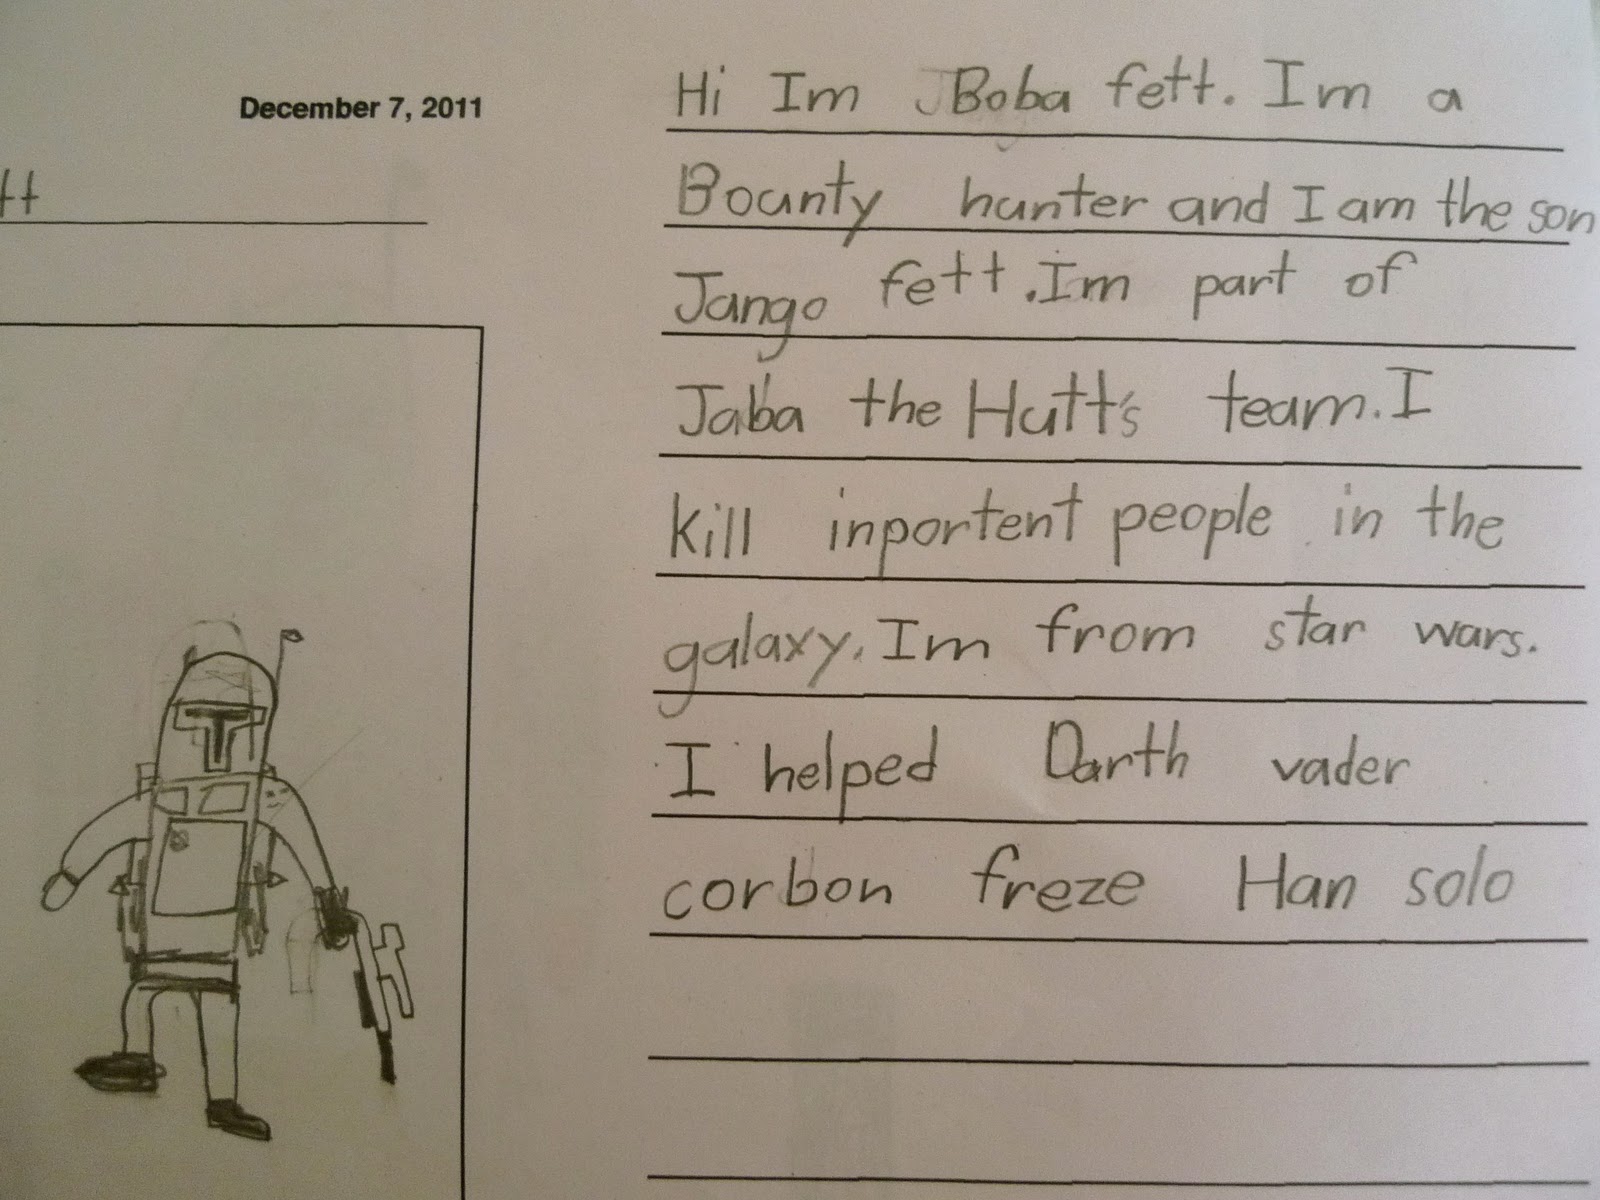 December 7, 2011
tt
Hi Im Boba fett. Im a
Bounty hunter and I am the son
Jango fett. Im part of
Jabba the Hutt's team. I
kill inportent people in the
galaxy. Im from star wars.
I helped Darth vader
corbon freze Han solo